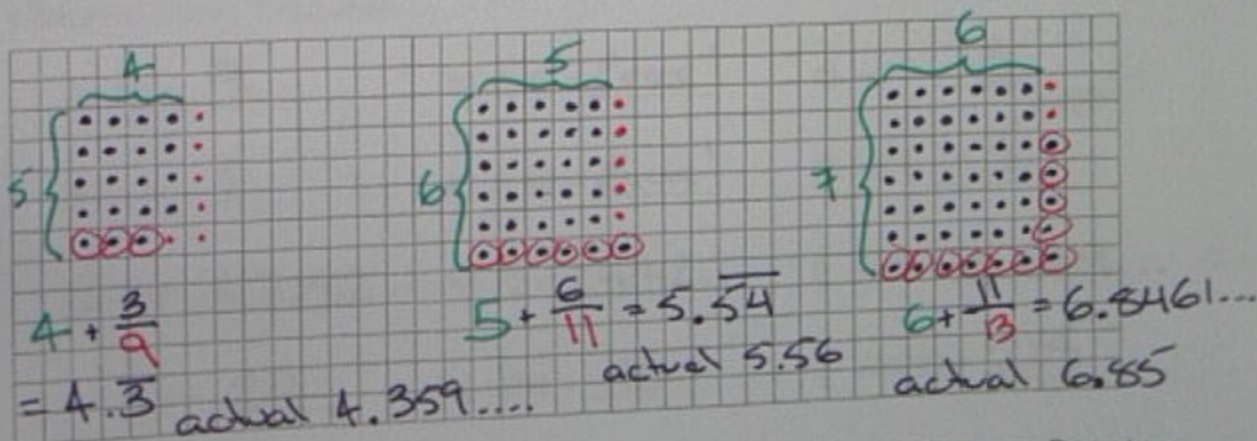 4
5
5
6
6
7
4 + 3/9
= 4.3̅ actual 4.359....
5 + 6/11 = 5.5̅4̅
actual 5.56
6 + 11/13 = 6.8461...
actual 6.85